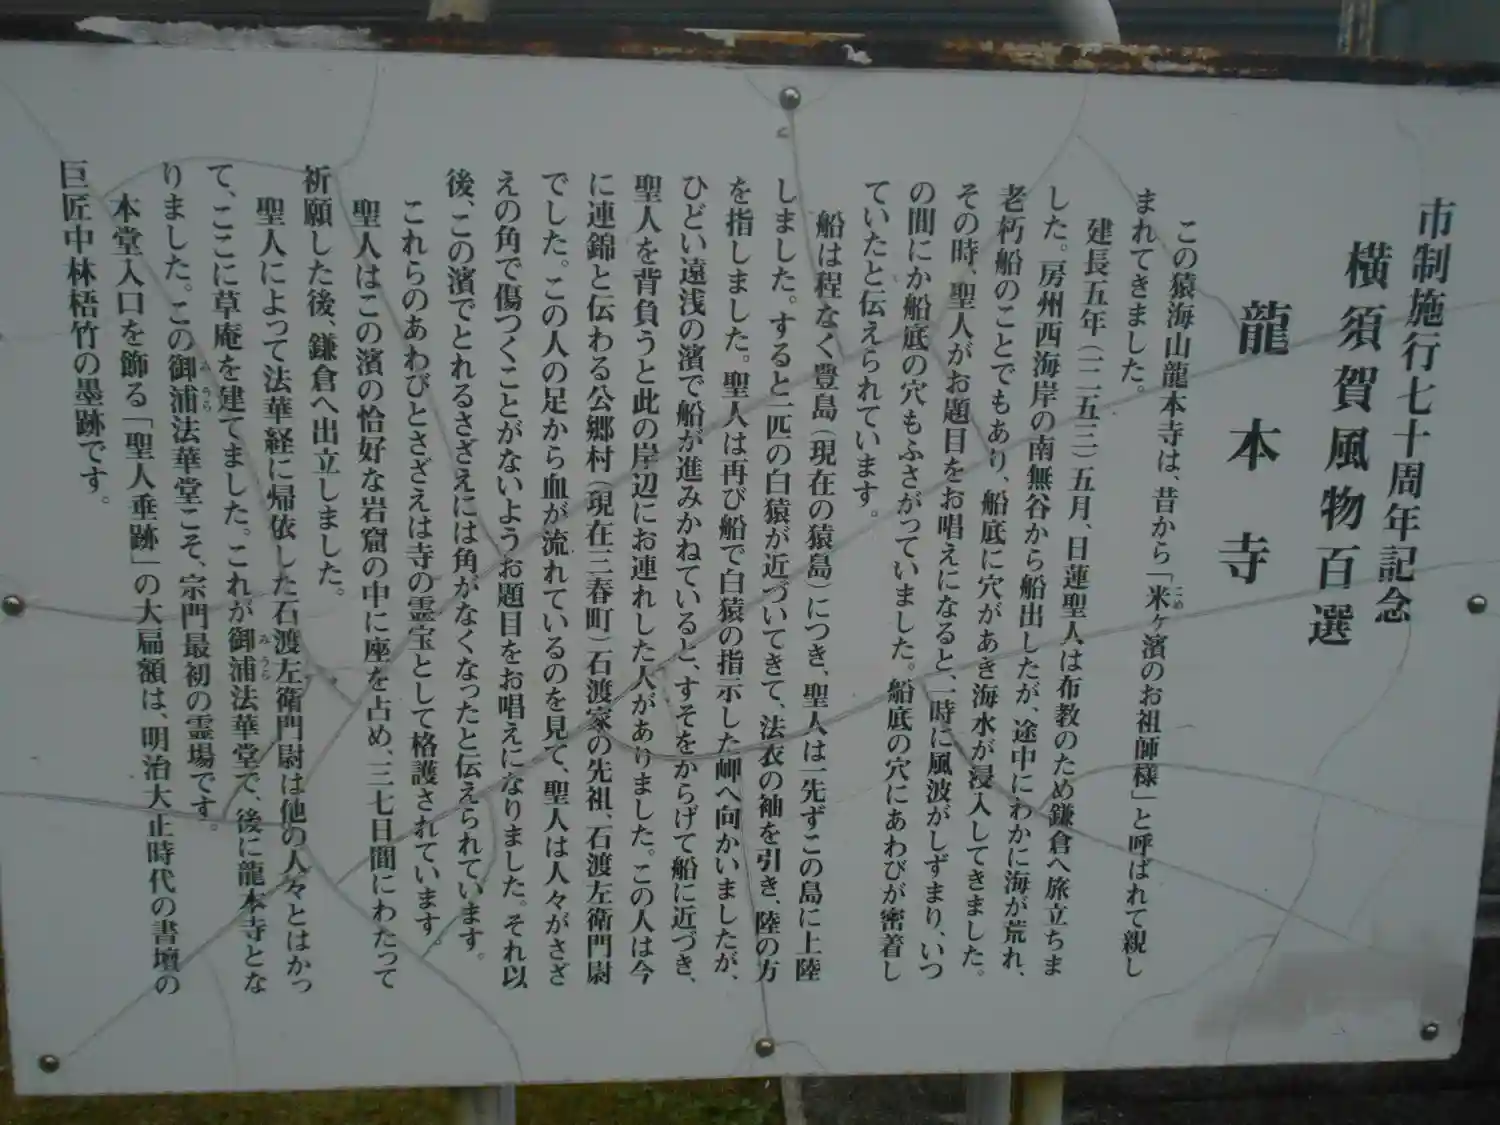 市制施行七十周年記念
横須賀風物百選
龍本寺
この猿海山龍本寺は、昔から「米ヶ濱のお祖師様」と呼ばれて親し
まれてきました。
建長五年(一二五三)五月、日蓮聖人は布教のため鎌倉へ旅立ちま
した。房州西海岸の南無谷から船出したが、途中にわかに海が荒れ、
老朽船のことでもあり、船底に穴があき海水が浸入してきました。
その時、聖人がお題目をお唱えになると、一時に風波がしずまり、いつ
の間にか船底の穴もふさがっていました。船底の穴にあわびが密着し
ていたと伝えられています。
船は程なく豊島(現在の猿島)につき、聖人は一先ずこの島に上陸
しました。すると一匹の白猿が近づいてきて、法衣の袖を引き、陸の方
を指しました。聖人は再び船で白猿の指示した岬へ向かいましたが、
ひどい遠浅の濱で船が進みかねていると、すそをからげて船に近づき、
聖人を背負うと此の岸辺にお連れした人がありました。この人は今
に連錦と伝わる公郷村(現在三春町)石渡家の先祖、石渡左衛門尉
でした。この人の足から血が流れているのを見て、聖人は人々がさざ
えの角で傷つくことがないようお題目をお唱えになりました。それ以
後、この濱でとれるさざえには角がなくなったと伝えられています。
これらのあわびとさざえは寺の霊宝として格護されています。
聖人はこの濱の恰好な岩窟の中に座を占め、三七日間にわたって
祈願した後、鎌倉へ出立しました。
聖人によって法華経に帰依した石渡左衛門尉は他の人々とはかっ
て、ここに草庵を建てました。これが御浦法華堂で、後に龍本寺とな
りました。この御浦法華堂こそ、宗門最初の霊場です。
本堂入口を飾る「聖人垂跡」の大扁額は、明治大正時代の書壇の
巨匠中林梧竹の墨跡です。